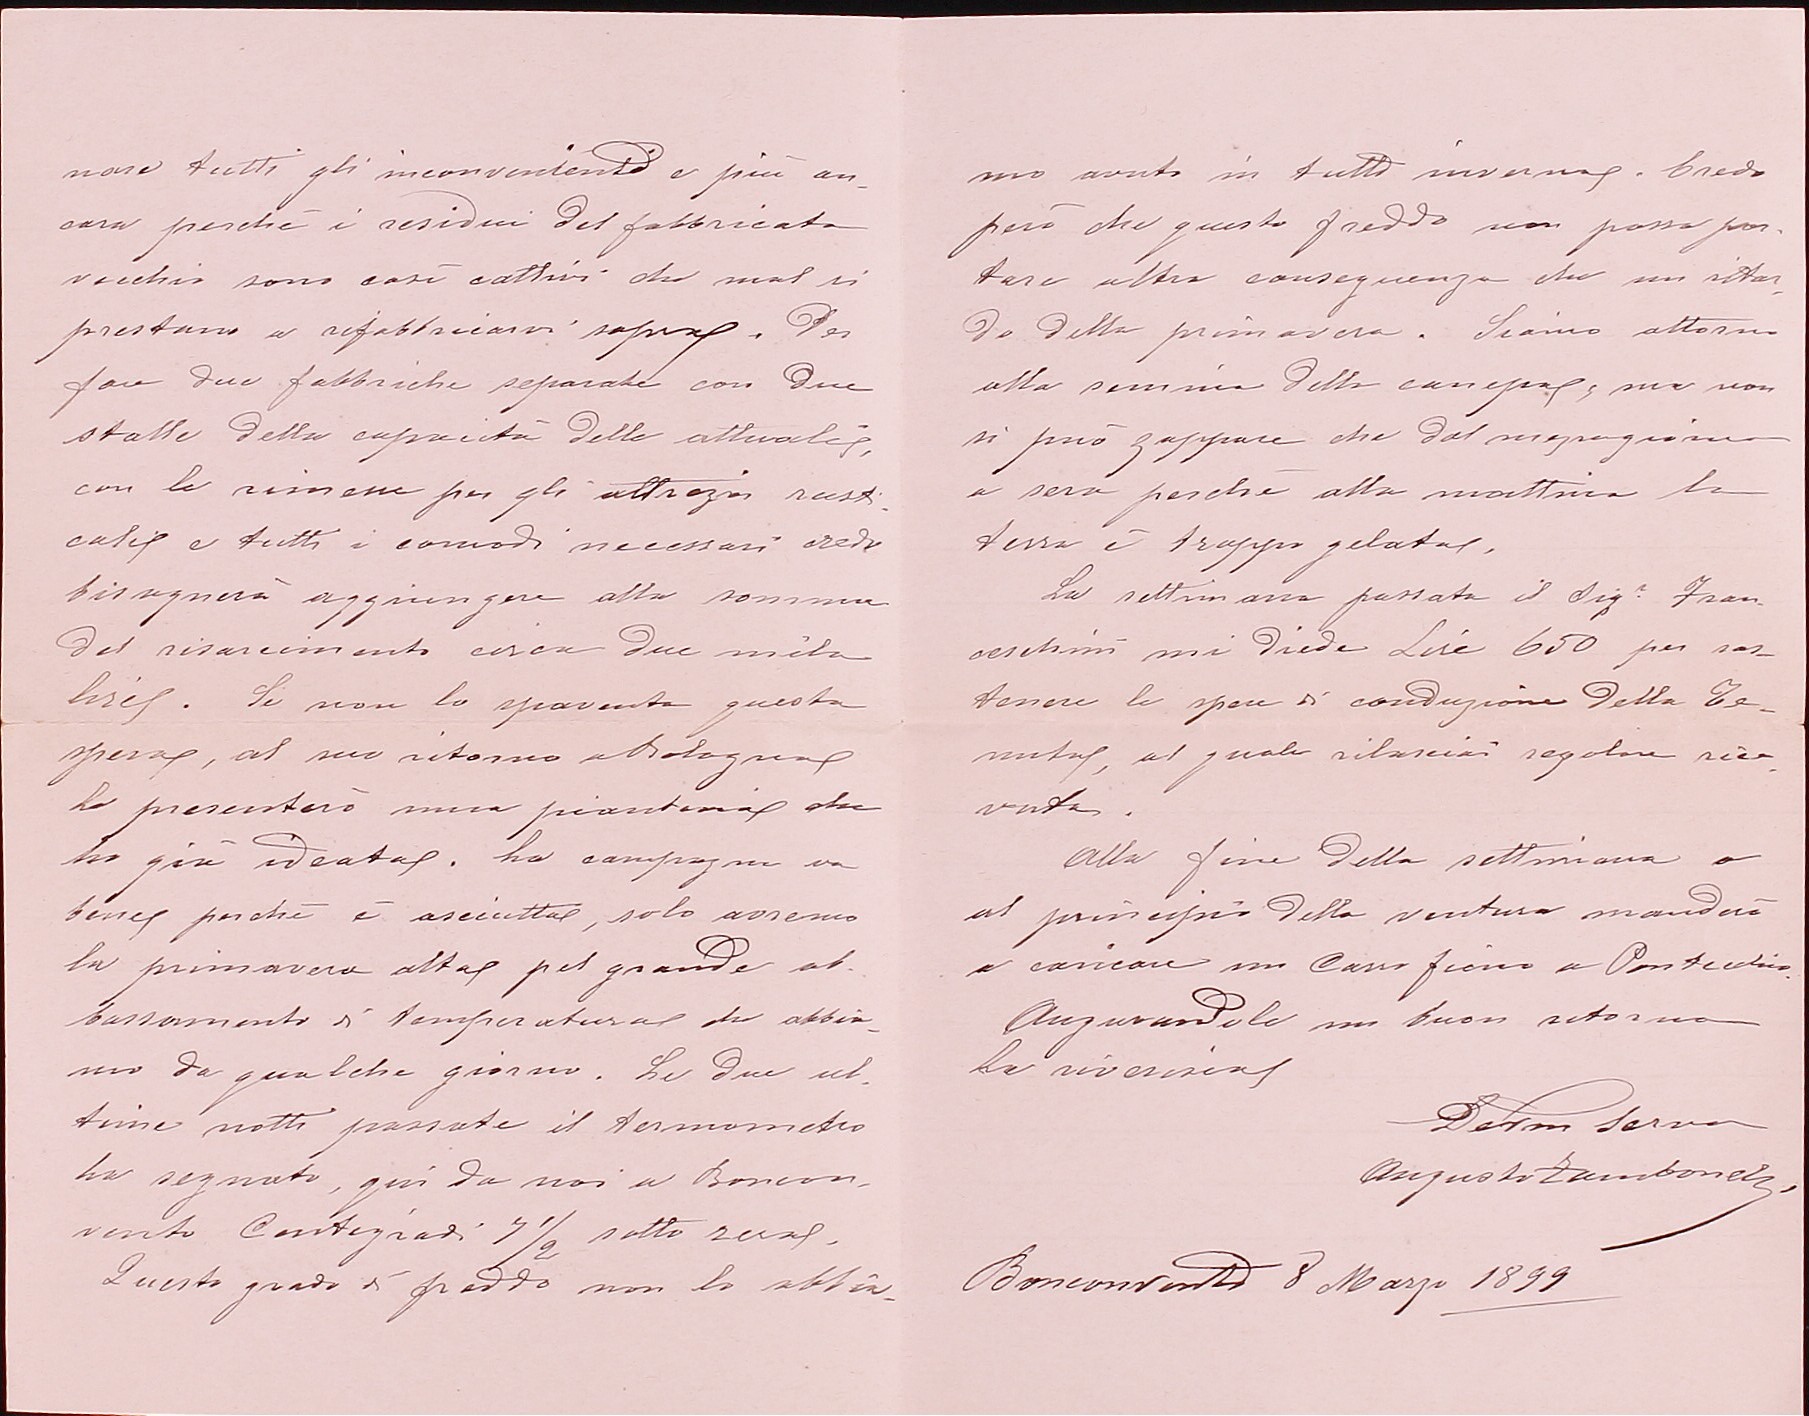 nare tutti gli inconvenienti e più an-
cora perchè i residui del fabbricato
vecchio sono così cattivi che mal si
prestano a rifabbricarvi sopra. Per
fare due fabbriche separate con due
stalle della capacità delle attuali,
con le rimesse per gli attrezzi rusti-
cali e tutti i comodi necessari credo
bisognerà aggiungere alla somma
del risarcimento circa due mila
lire. Se non lo spaventa questa
spesa, al suo ritorno a Bologna
le presenterò una piantina che
ho già ideata. La campagna va
bene perchè è asciutta, solo avremo
la primavera alta pel grande ab-
bassamento di temperatura che abbia-
mo da qualche giorno. Le due ul-
time notti passate il termometro
ha segnato, quì da noi a Boncon-
vento Centigradi 7 1/2 sotto zero.
Questo grado di freddo non lo abbia-
mo avuto in tutto inverno. Credo
però che questo freddo non possa por-
tare altra conseguenza che un ritar-
do della primavera. Siamo attorno
alla semina della canepa, ma non
si può zappare che dal mezzogiorno
a sera perchè alla mattina la
terra è troppo gelata.
La settimana passata il Sigr. Fran-
ceschini mi diede Lire 650 per sos-
tenere le spese di conduzione della Te-
nuta, al quale rilasciai regolare rice-
vuta.
Alla fine della settimana o
al principio della ventura manderò
a caricare un Carro fieno a Pontecchio.
Augurandole un buon ritorno
la riverisco
Devmo Servo
Augusto Zambonelli
Bonconvento 8 Marzo 1899